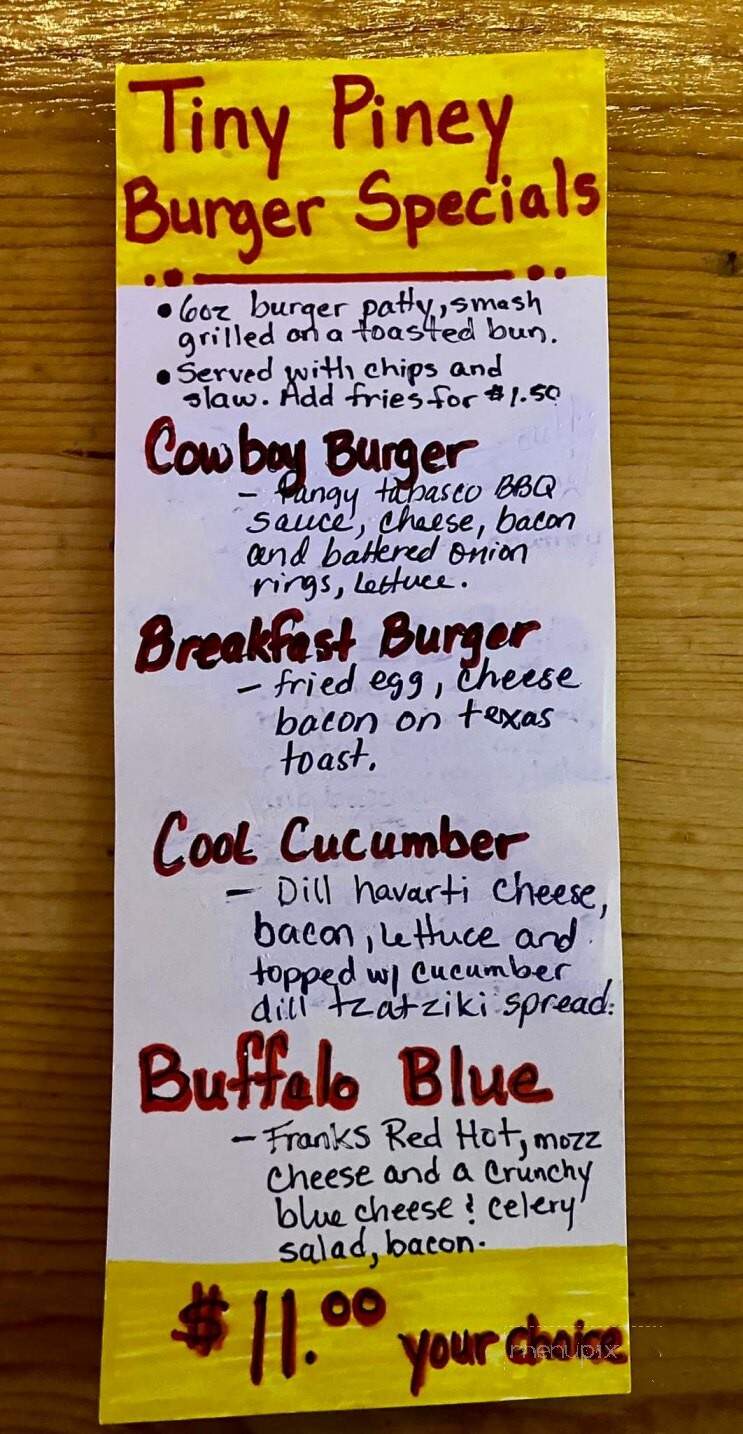 Tiny Piney
Burger Specials
• 6oz burger patty, smash
grilled on a toasted bun.
• Served with chips and
slaw. Add fries for $1.50
Cowboy Burger
- Tangy tabasco BBQ
sauce, cheese, bacon
and battered onion
rings, lettuce.
Breakfast Burger
- fried egg, cheese
bacon on texas
toast.
Cool Cucumber
- Dill havarti cheese,
bacon, lettuce and
topped w/ cucumber
dill tzatziki spread.
Buffalo Blue
- Franks Red Hot, mozz
cheese and a crunchy
blue cheese & celery
salad, bacon.
$11.00 your choice
menupix